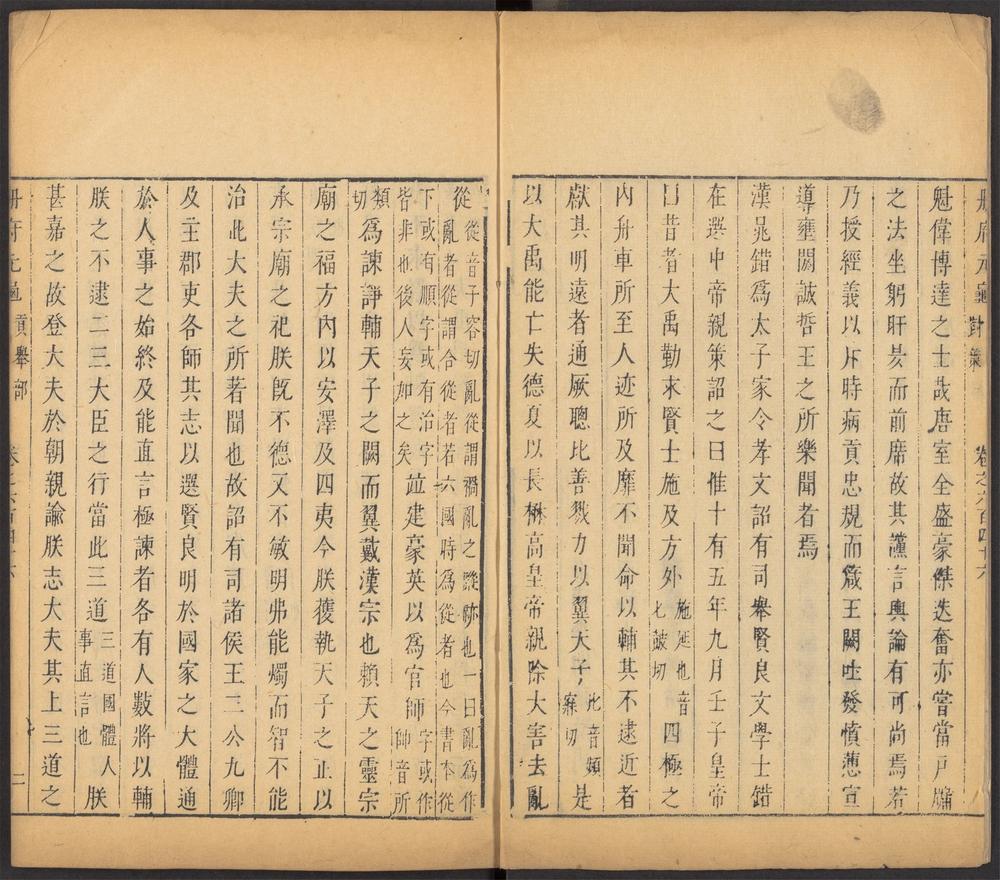 冊府元龜對策 卷之六百四十六
魁偉博達之士哉唐室全盛豪傑迭奮亦嘗當戶牖
之法坐躬旰昃而前席故其讜言輿論有可尚焉若
乃授經義以斥時病貢忠規而箴王闕吐發憤懣宣
導壅閼誠哲王之所樂聞者焉
漢晁錯為太子家令孝文詔有司舉賢良文學士錯
在選中帝親策詔之曰惟十有五年九月壬子皇帝
曰昔者大禹勤求賢士施及方外施延也音弋豉切四極之
內舟車所至人迹所及靡不聞命以輔其不逮近者
獻其明遠者通厥聰比善戮力以翼天子比音頻寐切是
以大禹能亡失德夏以長楙高皇帝親除大害去亂
從從音子容切亂從謂禍亂之蹤跡也一曰亂為作亂者從謂合從者若六國時為從者也今書本從下或有順字或有治字皆非也後人妄加之矣並建豪英以為官師師字或作帥音所類切為諫諍輔天子之闕而翼戴漢宗也賴天之靈宗
廟之福方內以安澤及四夷今朕獲執天子之正以
承宗廟之祀朕既不德又不敏明弗能燭而智不能
治此大夫之所著聞也故詔有司諸侯王三公九卿
及主郡吏各帥其志以選賢良明於國家之大體通
於人事之始終及能直言極諫者各有人數將以輔
朕之不逮二三大臣之行當此三道三道國體人事直言也朕
甚嘉之故登大夫於朝親諭朕志大夫其上三道之
冊府元龜 貢舉部 卷之六百四十六 二